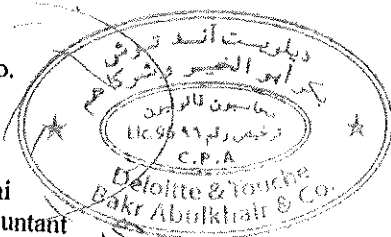 o.
ديلويت آند توش
بكر أبو الخير وشركاهم
محاسبون قانونيون
ترخيص رقم ٩٦
Lic. 96
C.P.A
Deloitte & Touche
Bakr Abulkhair & Co.
ni
ountant